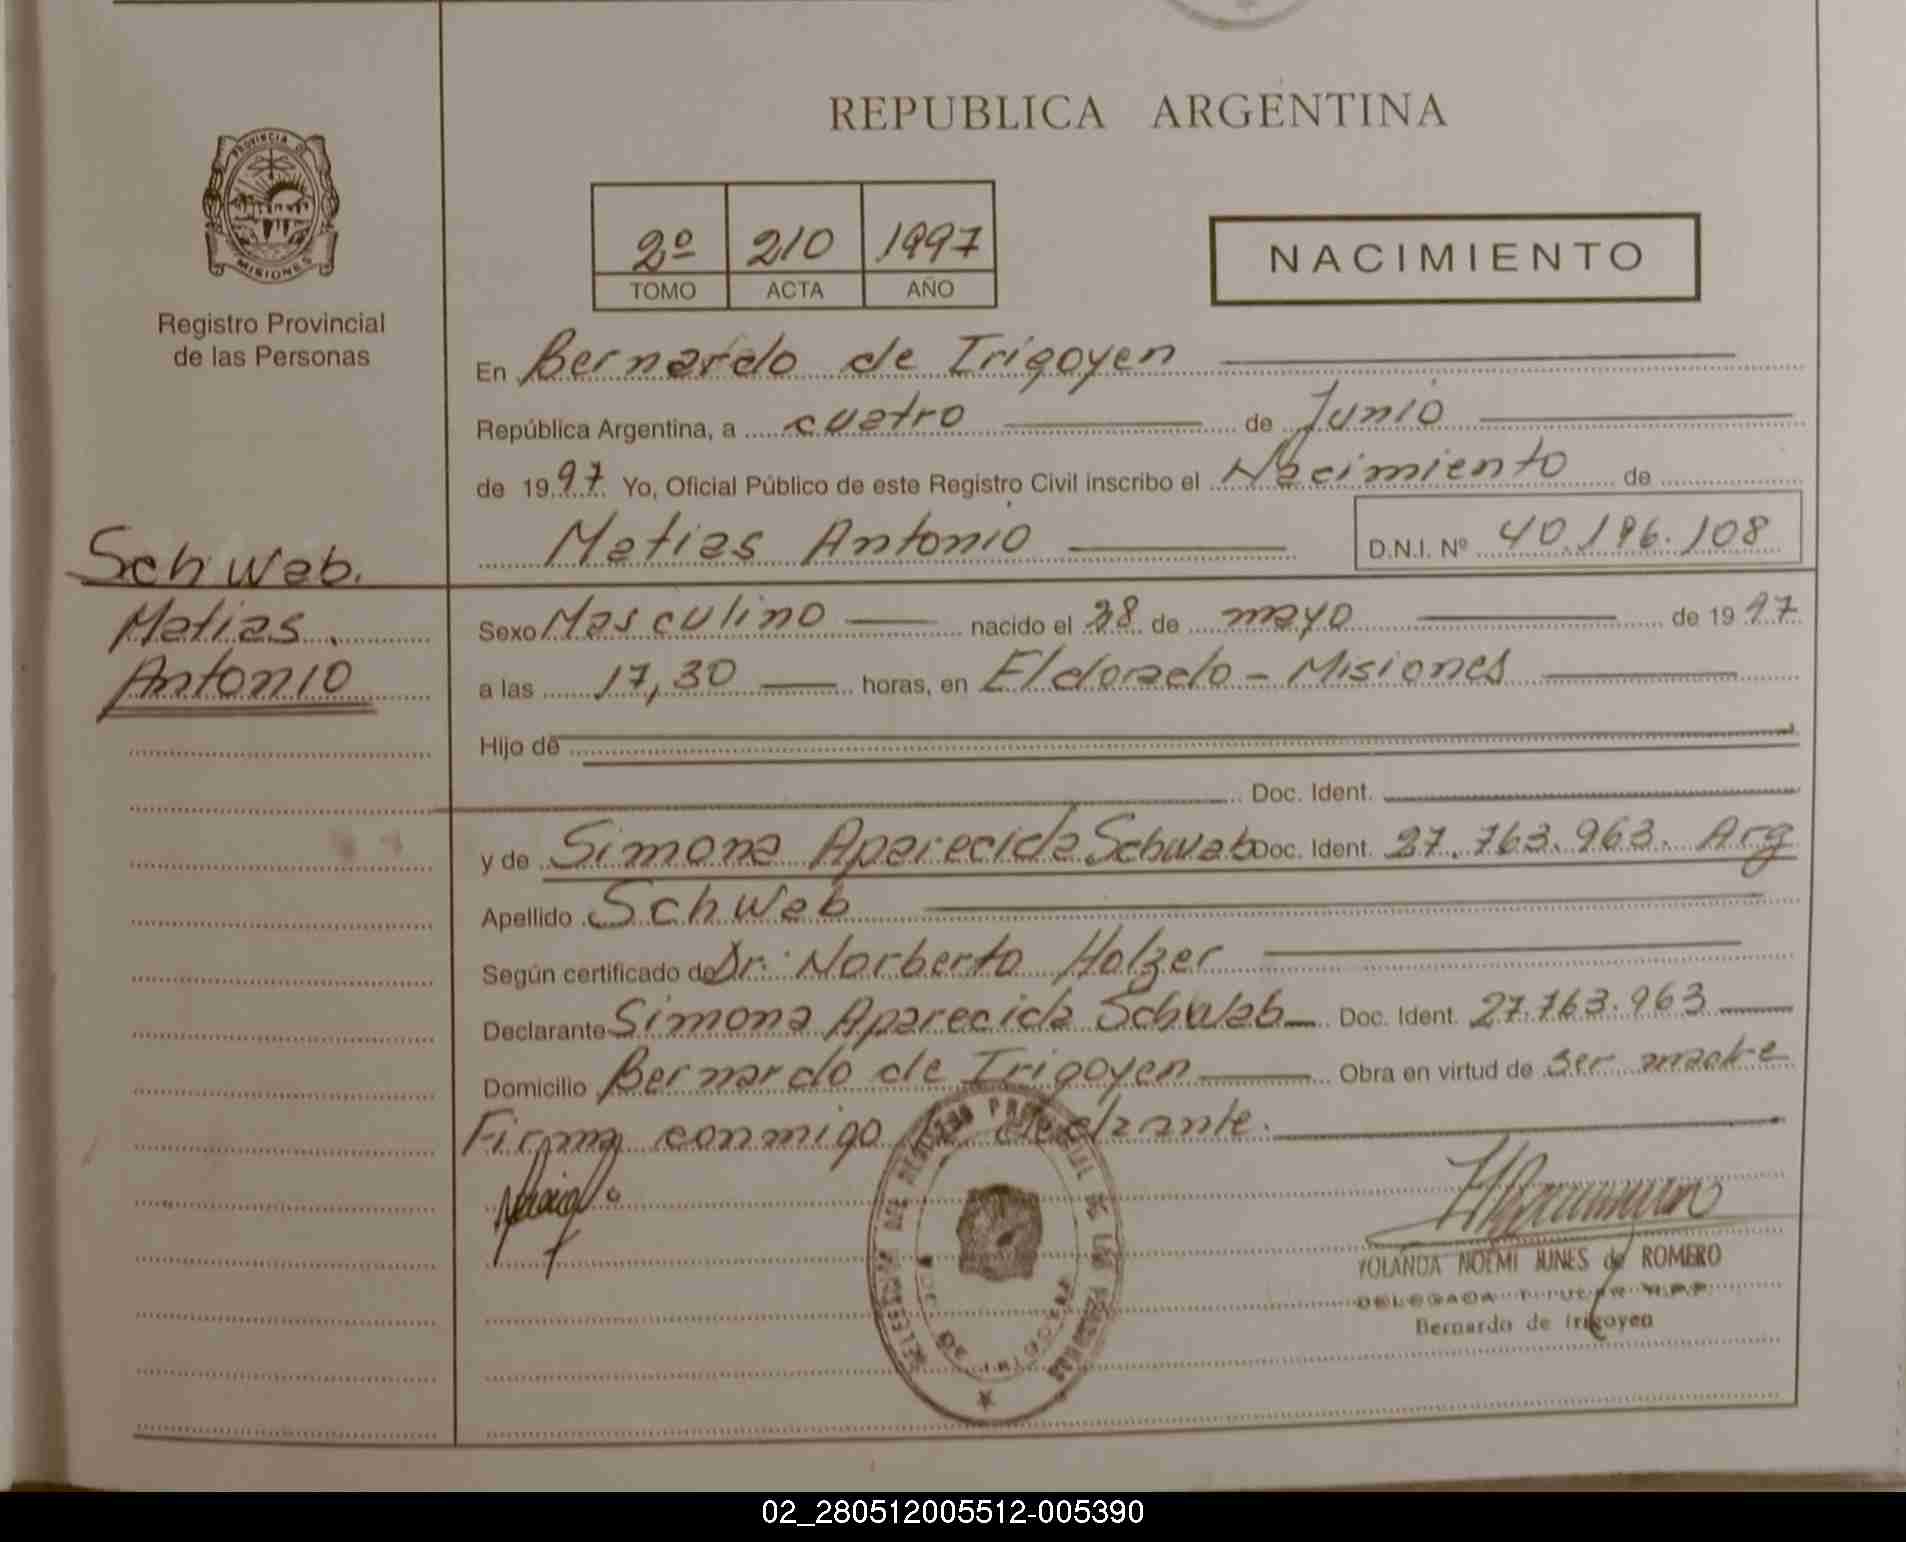 PROVINCIA DE
MISIONES
Registro Provincial
de las Personas
Schwab.
Matias
Antonio
REPUBLICA ARGENTINA
2º 210 1997
TOMO ACTA AÑO
NACIMIENTO
En Bernardo de Irigoyen
República Argentina, a cuatro de Junio
de 1997 Yo, Oficial Público de este Registro Civil inscribo el Nacimiento de
Matias Antonio D.N.I. Nº 40.196.108
Sexo Masculino nacido el 28 de mayo de 1997
a las 17,30 horas, en Eldorado - Misiones
Hijo de
Doc. Ident.
y de Simona Aparecida Schwab Doc. Ident. 27.763.963. Arg
Apellido Schwab
Según certificado de Dr. Norberto Holzer
Declarante Simona Aparecida Schwab Doc. Ident. 27.763.963
Domicilio Bernardo de Irigoyen Obra en virtud de ser madre
Firma conmigo la declarante.
YOLANDA NOEMI JUNES de ROMERO
DELEGADA TITULAR R.P.P.
Bernardo de Irigoyen
02_280512005512-005390